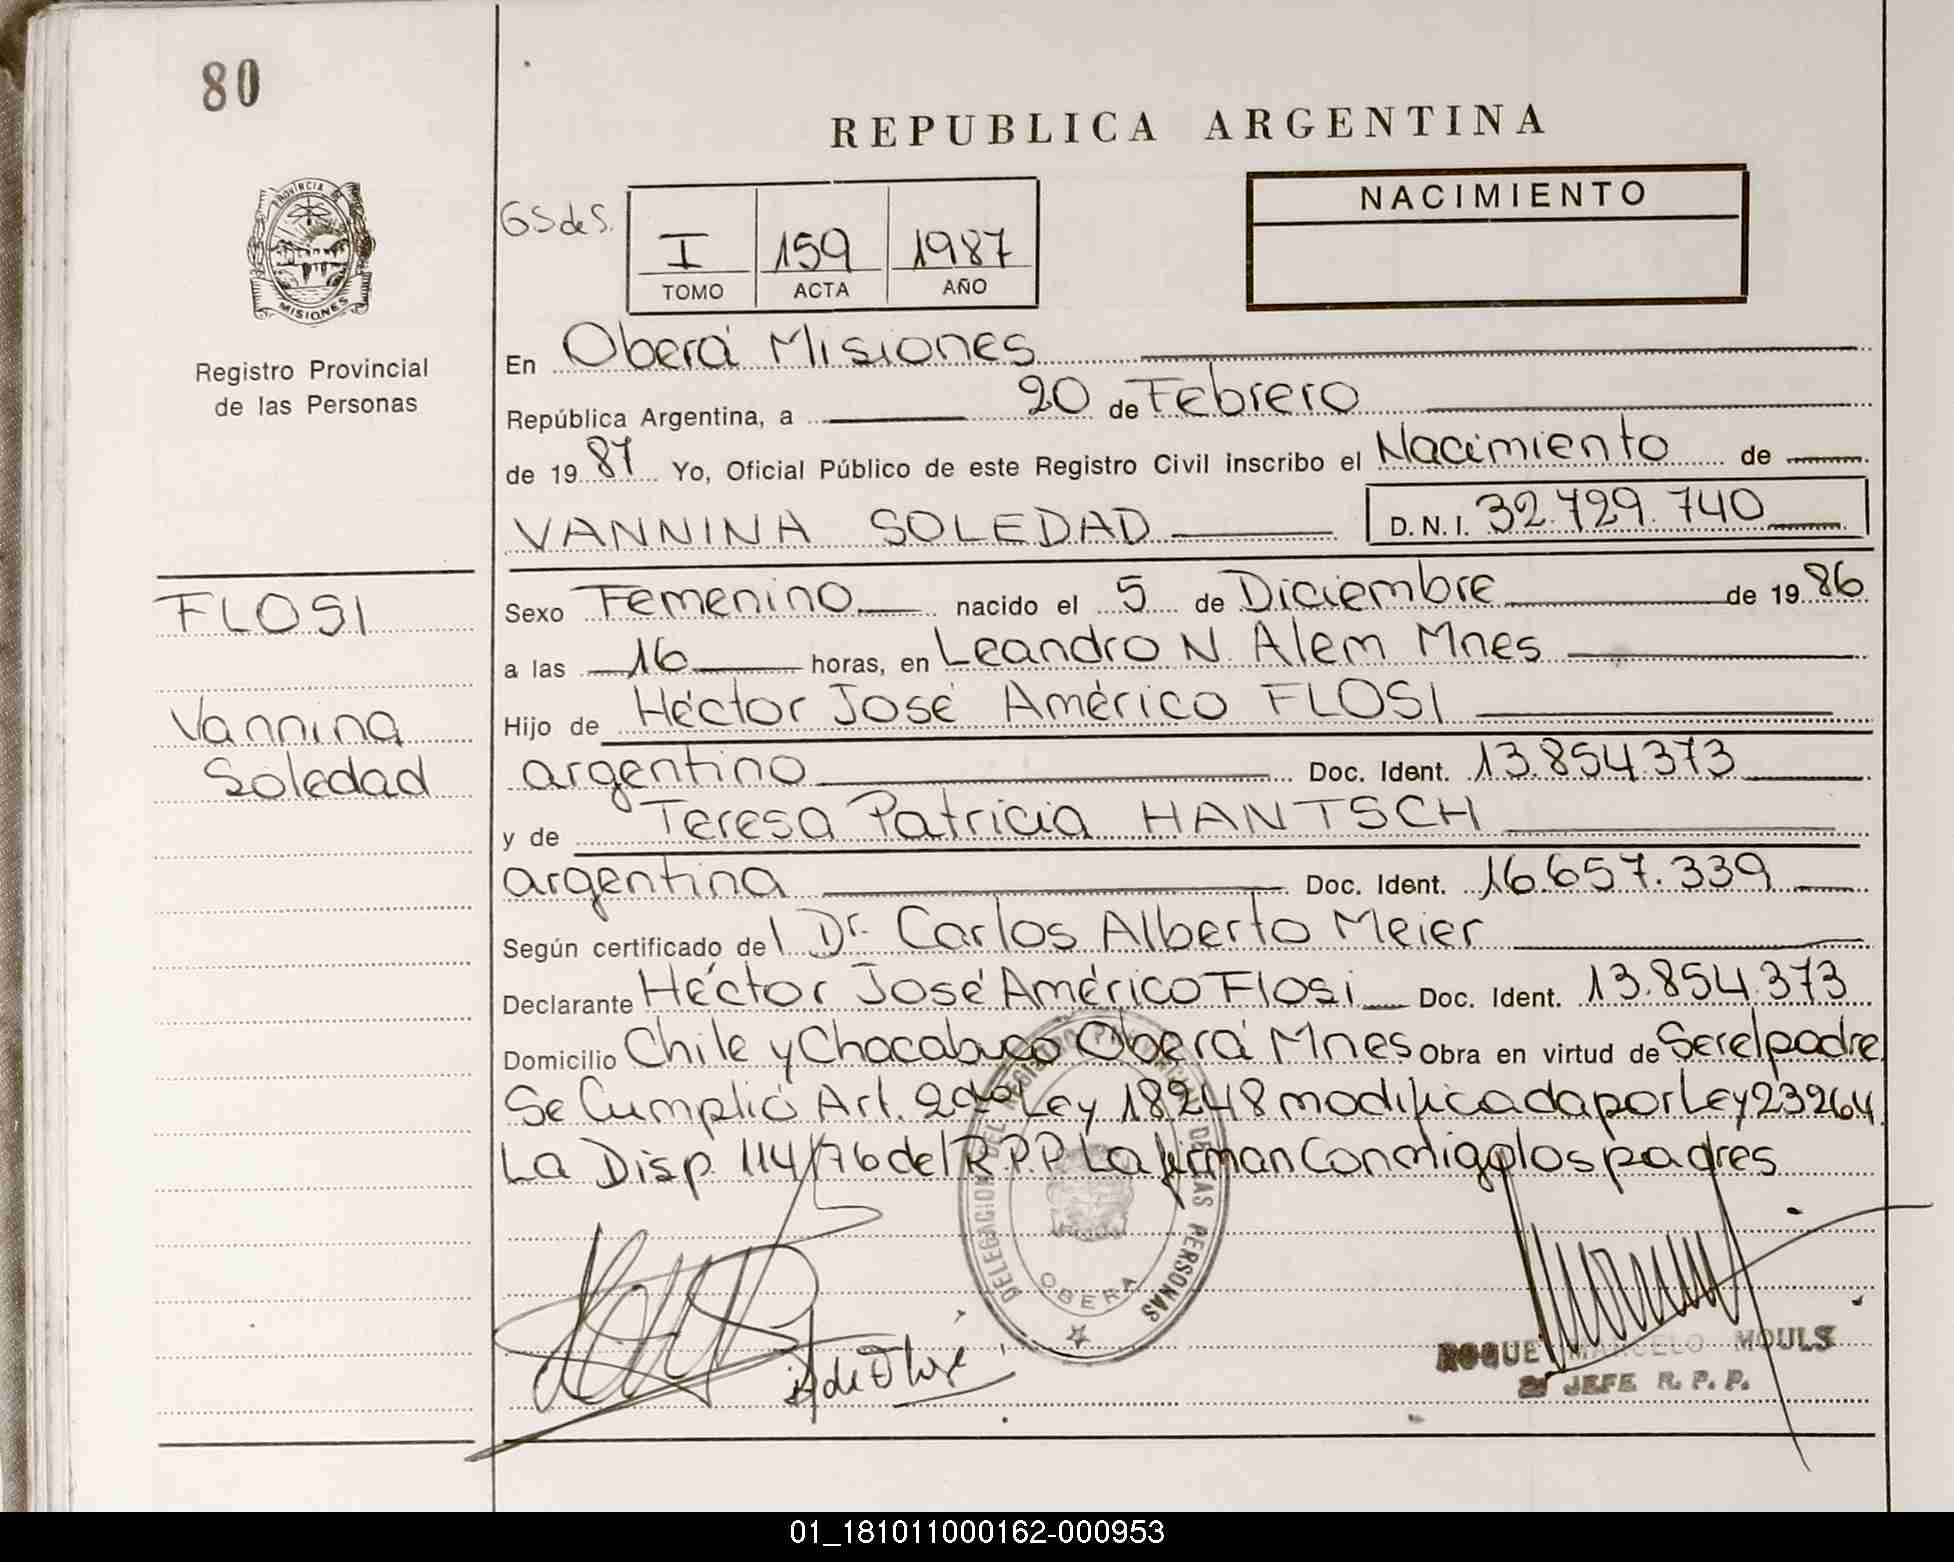 80
REPUBLICA ARGENTINA
PROVINCIA DE
MISIONES
GSdeS.
I 159 1987
TOMO ACTA AÑO
NACIMIENTO
Registro Provincial
de las Personas
En Oberá Misiones
República Argentina, a 20 de Febrero
de 19 87 Yo, Oficial Público de este Registro Civil inscribo el Nacimiento de
VANNINA SOLEDAD D.N.I. 32.729.740
FLOSI
Vannina
Soledad
Sexo Femenino nacido el 5 de Diciembre de 19 86
a las 16 horas, en Leandro N. Alem Mnes
Hijo de Héctor José Américo FLOSI
argentino Doc. Ident. 13.854.373
y de Teresa Patricia HANTSCH
argentina Doc. Ident. 16.657.339
Según certificado del Dr. Carlos Alberto Meier
Declarante Héctor José Américo Flosi Doc. Ident. 13.854.373
Domicilio Chile y Chacabuco Oberá Mnes Obra en virtud de Ser el padre
Se Cumplió Art. 2do Ley 18248 modificada por Ley 23264
La Disp. 114/76 del R.P.P. La firman Conmigo los padres
DELEGACION DEL REGISTRO PROVINCIAL DE LAS PERSONAS
OBERA
ROQUE MARCELO MOULS
2º JEFE R. P. P.
01_181011000162-000953